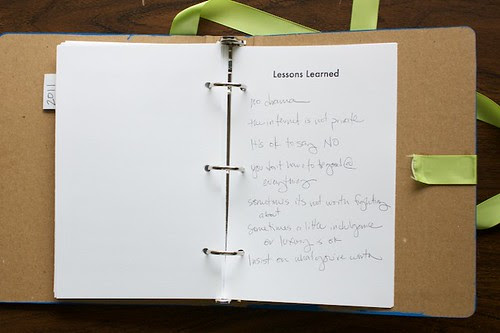 2011
Lessons Learned
no drama
the internet is not private
It's ok to say NO
you don't have to be good @
everything
sometimes its not worth fighting
about
sometimes a little indulgence
or luxury is ok
Insist on what you're worth